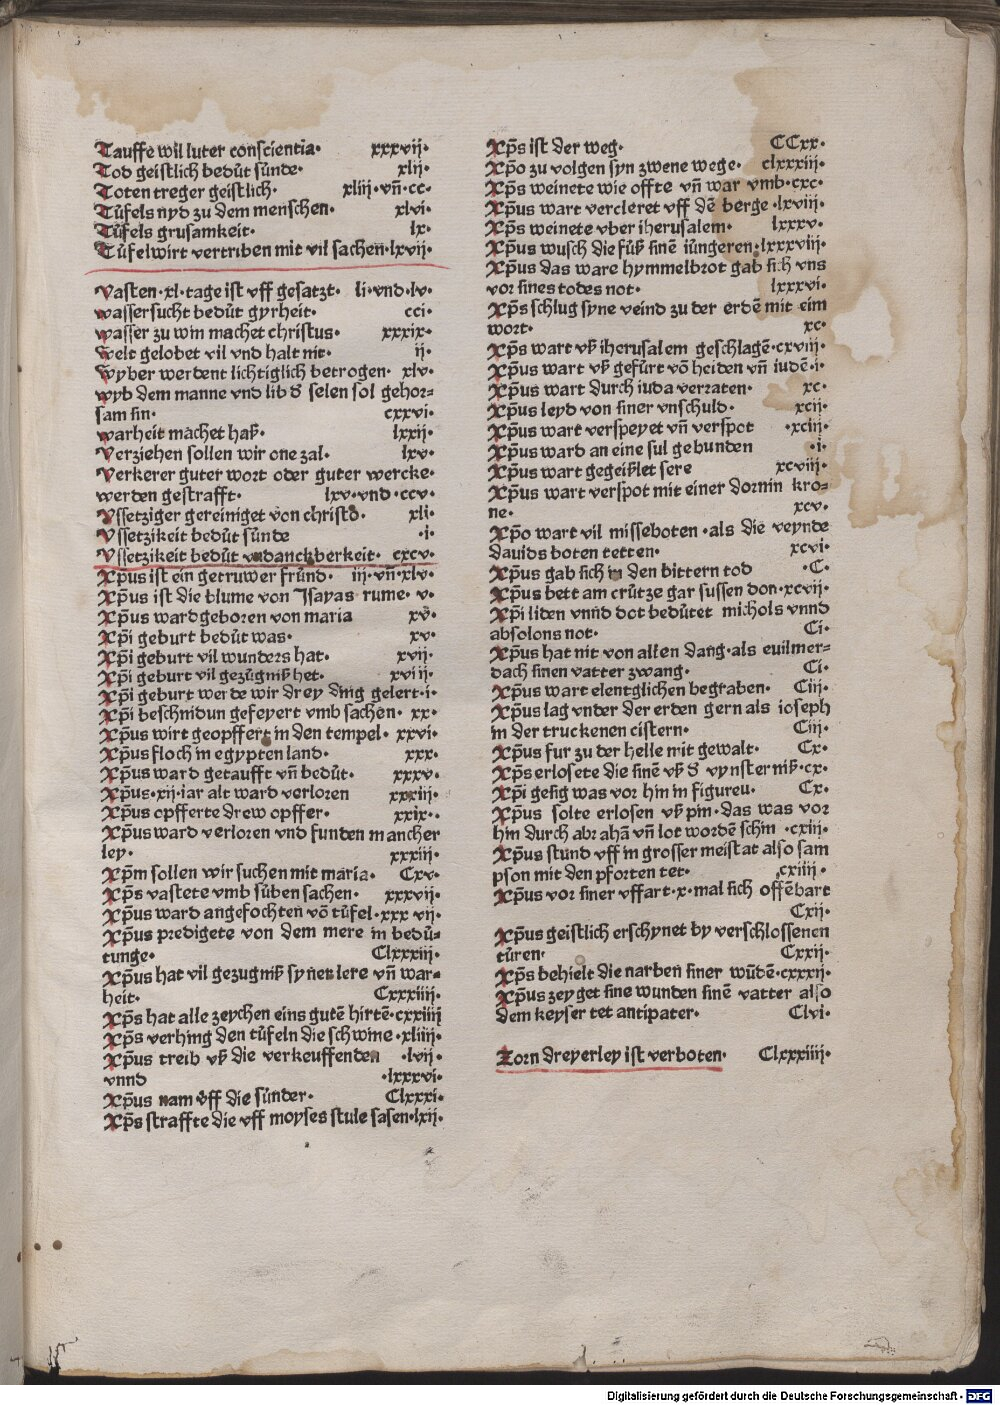 Tauffe wil luter conscientia· xxxvij·
Tod geistlich bedůt sünde· xlij·
Toten treger geistlich· xliij·vn̄·cc·
Tüfels nyd zu dem menschen· xlvi·
Tüfels grusamkeit· lx·
Tüfelwirt vertriben mit vil sachen·lxvij·
Vasten·xl·tage ist vff gesatzt· li·vnd·lv·
wassersucht bedüt gyrheit· cci·
wasser zu win machet christus· xxxix·
welt gelobet vil vnd halt nit· ij·
wyber werdent lichtiglich betrogen· xlv·
wyb dem manne vnd lib d̄ selen sol gehor=
sam sin· cxxvi·
warheit machet haß· lxxij·
Verziehen sollen wir one zal· lxv·
Verkerer guter wort oder guter wercke·
werden gestrafft· lxv·vnd·ccv·
Vssetziger gereiniget von christo· xli·
Vssetzikeit bedüt sünde ·i·
Vssetzikeit bedüt vndanckberkeit· cxcv·
Xp̄us ist ein getruwer fründ· iij·vn̄·xlv·
Xp̄us ist die blume von Isayas rume· v·
Xp̄us wardgeboren von maria xv·
Xp̄i geburt bedüt was· xv·
Xp̄i geburt vil wunders hat· xvij·
Xp̄i geburt vil gezügniß het· xviij·
Xp̄i geburt werde wir drey ding gelert·i·
Xp̄i beschnidun gefeyert vmb sachen· xx·
Xp̄us wirt geopffert in den tempel· xxvi·
Xp̄us floch in egyptenland· xxx·
Xp̄us ward getaufft vn̄ bedüt· xxxv·
Xp̄us·xij·iar alt ward verloren xxxiij·
Xp̄us opfferte drew opffer· xxix·
Xp̄us ward verloren vnd funden mancher
ley· xxxiij·
Xp̄m sollen wir suchen mit maria· Cxv·
Xp̄s vastete vmb süben sachen· xxxvij·
Xp̄us ward angefochten vō tüfel·xxxvij·
Xp̄us predigete von dem mere in bedü=
tunge· Clxxxiij·
Xp̄us hat vil gezugniß syner lere vn̄ war=
heit· Cxxxiiij·
Xp̄s hat alle zeychen eins gutē hirtē·cxxiiij
Xp̄s verhing den tüfeln die schwine·xliiij·
Xp̄us treib vß die verkeuffenden ·lvij·
vnnd ·lxxxvi·
Xp̄us nam vff die sünder· Clxxxi·
Xp̄s straffte die vff moyses stule sasen·lxij·
Xp̄s ist der weg· CCxx·
Xp̄o zu volgen syn zwene wege· clxxxiij·
Xp̄s weinete wie offte vn̄ war vmb·cxc·
Xp̄us wart vercleret vff dē berge·lxviij·
Xp̄s weinete vber iherusalem· lxxxv·
Xp̄us wusch die füß sinē iüngeren·lxxxviij·
Xp̄us das ware hymmelbrot gab sich vns
vor sines todes not· lxxxvi·
Xp̄s schlug syne veind zu der erdē mit eim
wort· xc·
Xp̄s wart vß iherusalem geschlagē·cxviij·
Xp̄us wart vß gefürt vō heiden vn̄ iudē·i·
Xp̄us wart durch iuda verraten· xc·
Xp̄us leyd von siner vnschuld· xcij·
Xp̄us wart verspeyet vn̄ verspot ·xciij·
Xp̄us ward an eine sul gebunden ·i·
Xp̄us wart gegeißlet sere xcviij·
Xp̄us wart verspot mit einer dornin kro=
ne· xcv·
Xp̄o wart vil misseboten·als die veynde
dauids boten tetten· xcvi·
Xp̄us gab sich in den bittern tod ·C·
Xp̄us bett am crütze gar sussen don·xcvij·
Xp̄i liden vnnd dot bedütet michols vnnd
absolons not· Ci·
Xp̄us hat nit von allen dang·als euilmer=
dach sinen vatter zwang· Ci·
Xp̄us wart elentglichen begraben· Ciij·
Xp̄us lag vnder der erden gern als ioseph
in der truckenen cistern· Ciij·
Xp̄us fur zu der helle mit gewalt· Cx·
Xp̄s erlosete die sinē vß d̄ vynsterniß·cx·
Xp̄i gesig was vor hin in figureu· Cx·
Xp̄us solte erlosen vß pin·das was vor
hin durch abrahā vn̄ lot wordē schin ·cxiij·
Xp̄us stund vff in grosser meistat also sam
pson mit den pforten tet· cxiiij·
Xp̄us vor siner vffart·x·mal sich offēbart
Cxij·
Xp̄us geistlich erschynet by verschlossenen
türen· Cxxij·
Xp̄s behielt die narben siner wūdē·cxxxij·
Xp̄us zeyget sine wunden sinē vatter also
dem keyser tet antipater· Clvi·
Zorn dreyerley ist verboten· Clxxxiiij·
Digitalisierung gefördert durch die Deutsche Forschungsgemeinschaft - DFG